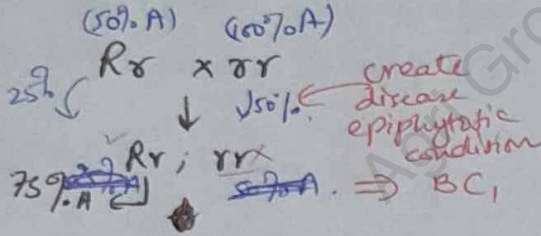 (50% A) (100% A)
Rr x rr
25% ↓50%. ← create disease epiphytotic condition
↓
Rr ; rr x
75% A . ⇒ BC₁
Agri Gro